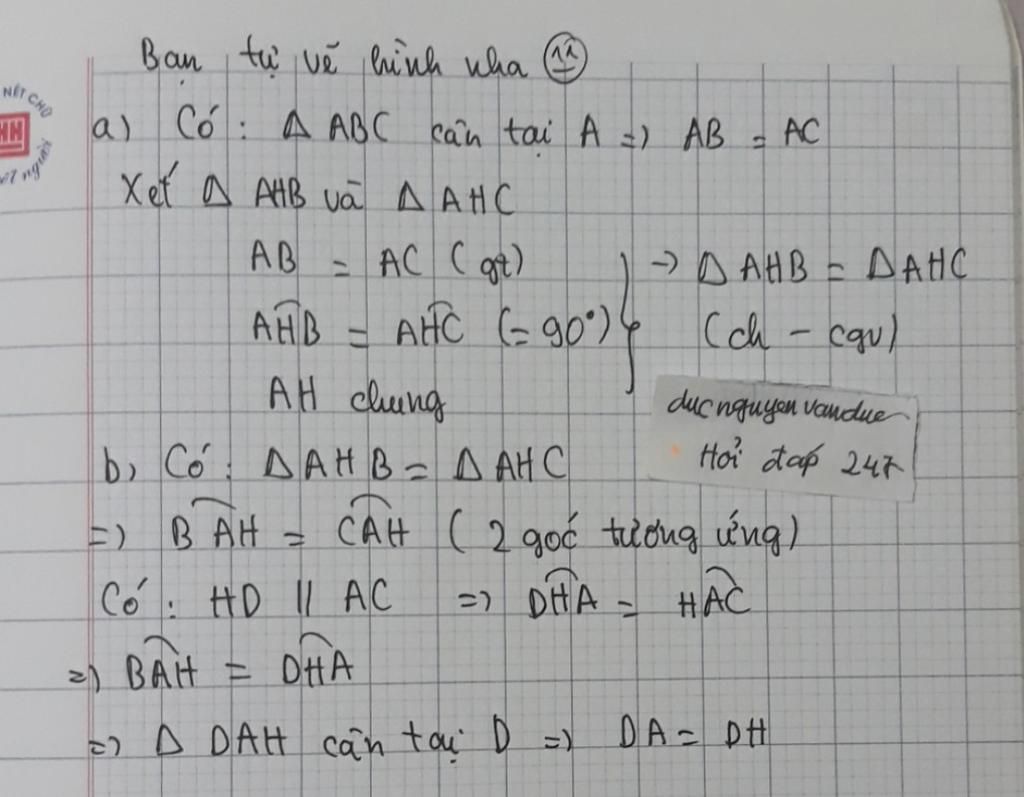 Bạn tự vẽ hình nha
NÉT CHỮ
a) Có : Δ ABC cân tại A => AB = AC
Xét Δ AHB và Δ AHC
AB = AC (gt)
AHB = AHC (= 90°) } -> Δ AHB = Δ AHC
(ch - cgv)
AH chung
ducnguyenvanduc
Hỏi đáp 247
b) Có : Δ AHB = Δ AHC
=> BAH = CAH ( 2 góc tương ứng)
Có : HD // AC => DHA = HAC
=> BAH = DHA
=> Δ DAH cân tại D => DA = DH